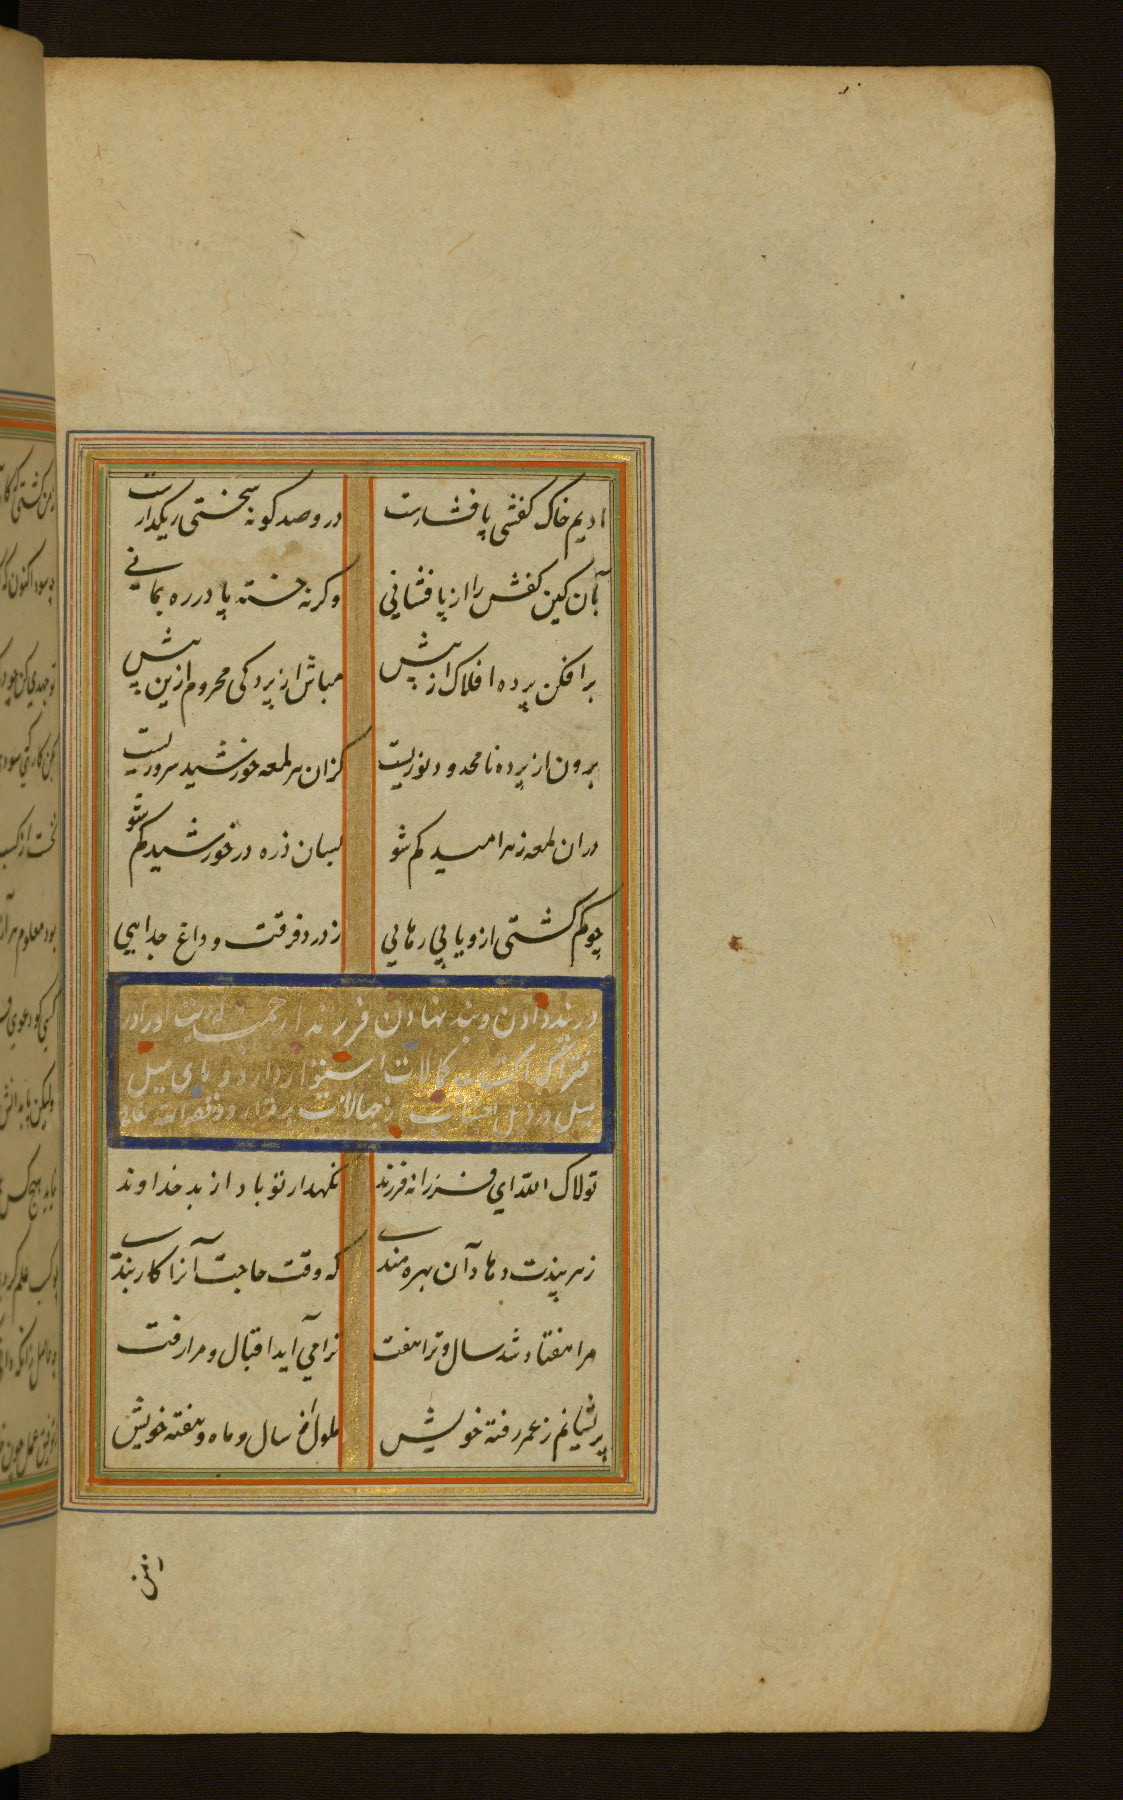 ادیم خاک کفشی پا فشارست
درو صد کونه سختی ریکدارست
بآن کین کفش را از پا فشانی
وکرنه خسته پا در ره بمانی
برافکن پرده افلاک از پیش
مباش از پردکی محروم ازین پیش
برون از پرده نامحدود نوریست
کزان هر لمعه خورشید سروریست
دران لمعه زهر امید کم شو
بسان ذره در خورشید کم شو
چو کم کشتی ازو یابی رهایی
ز درد فرقت و داغ جدایی
در پند دادن و بند نهادن فرزند ارجمند
اکتساب کمالات استوار دارد و پای میل
میل در ذیل اجتناب از جهالات برقرار
تولاک الله ای فرزانه فرزند
نکهدار تو باد از بد خداوند
زهر پندت دهاد آن بهره مندی
که وقت حاجت آنرا کار بندی
مرا هفتاد شد سال و ترا هفت
ترا می آید اقبال و مرا رفت
پشیمانم ز عمر رفته خویش
ملول از سال و ماه و هفته خویش